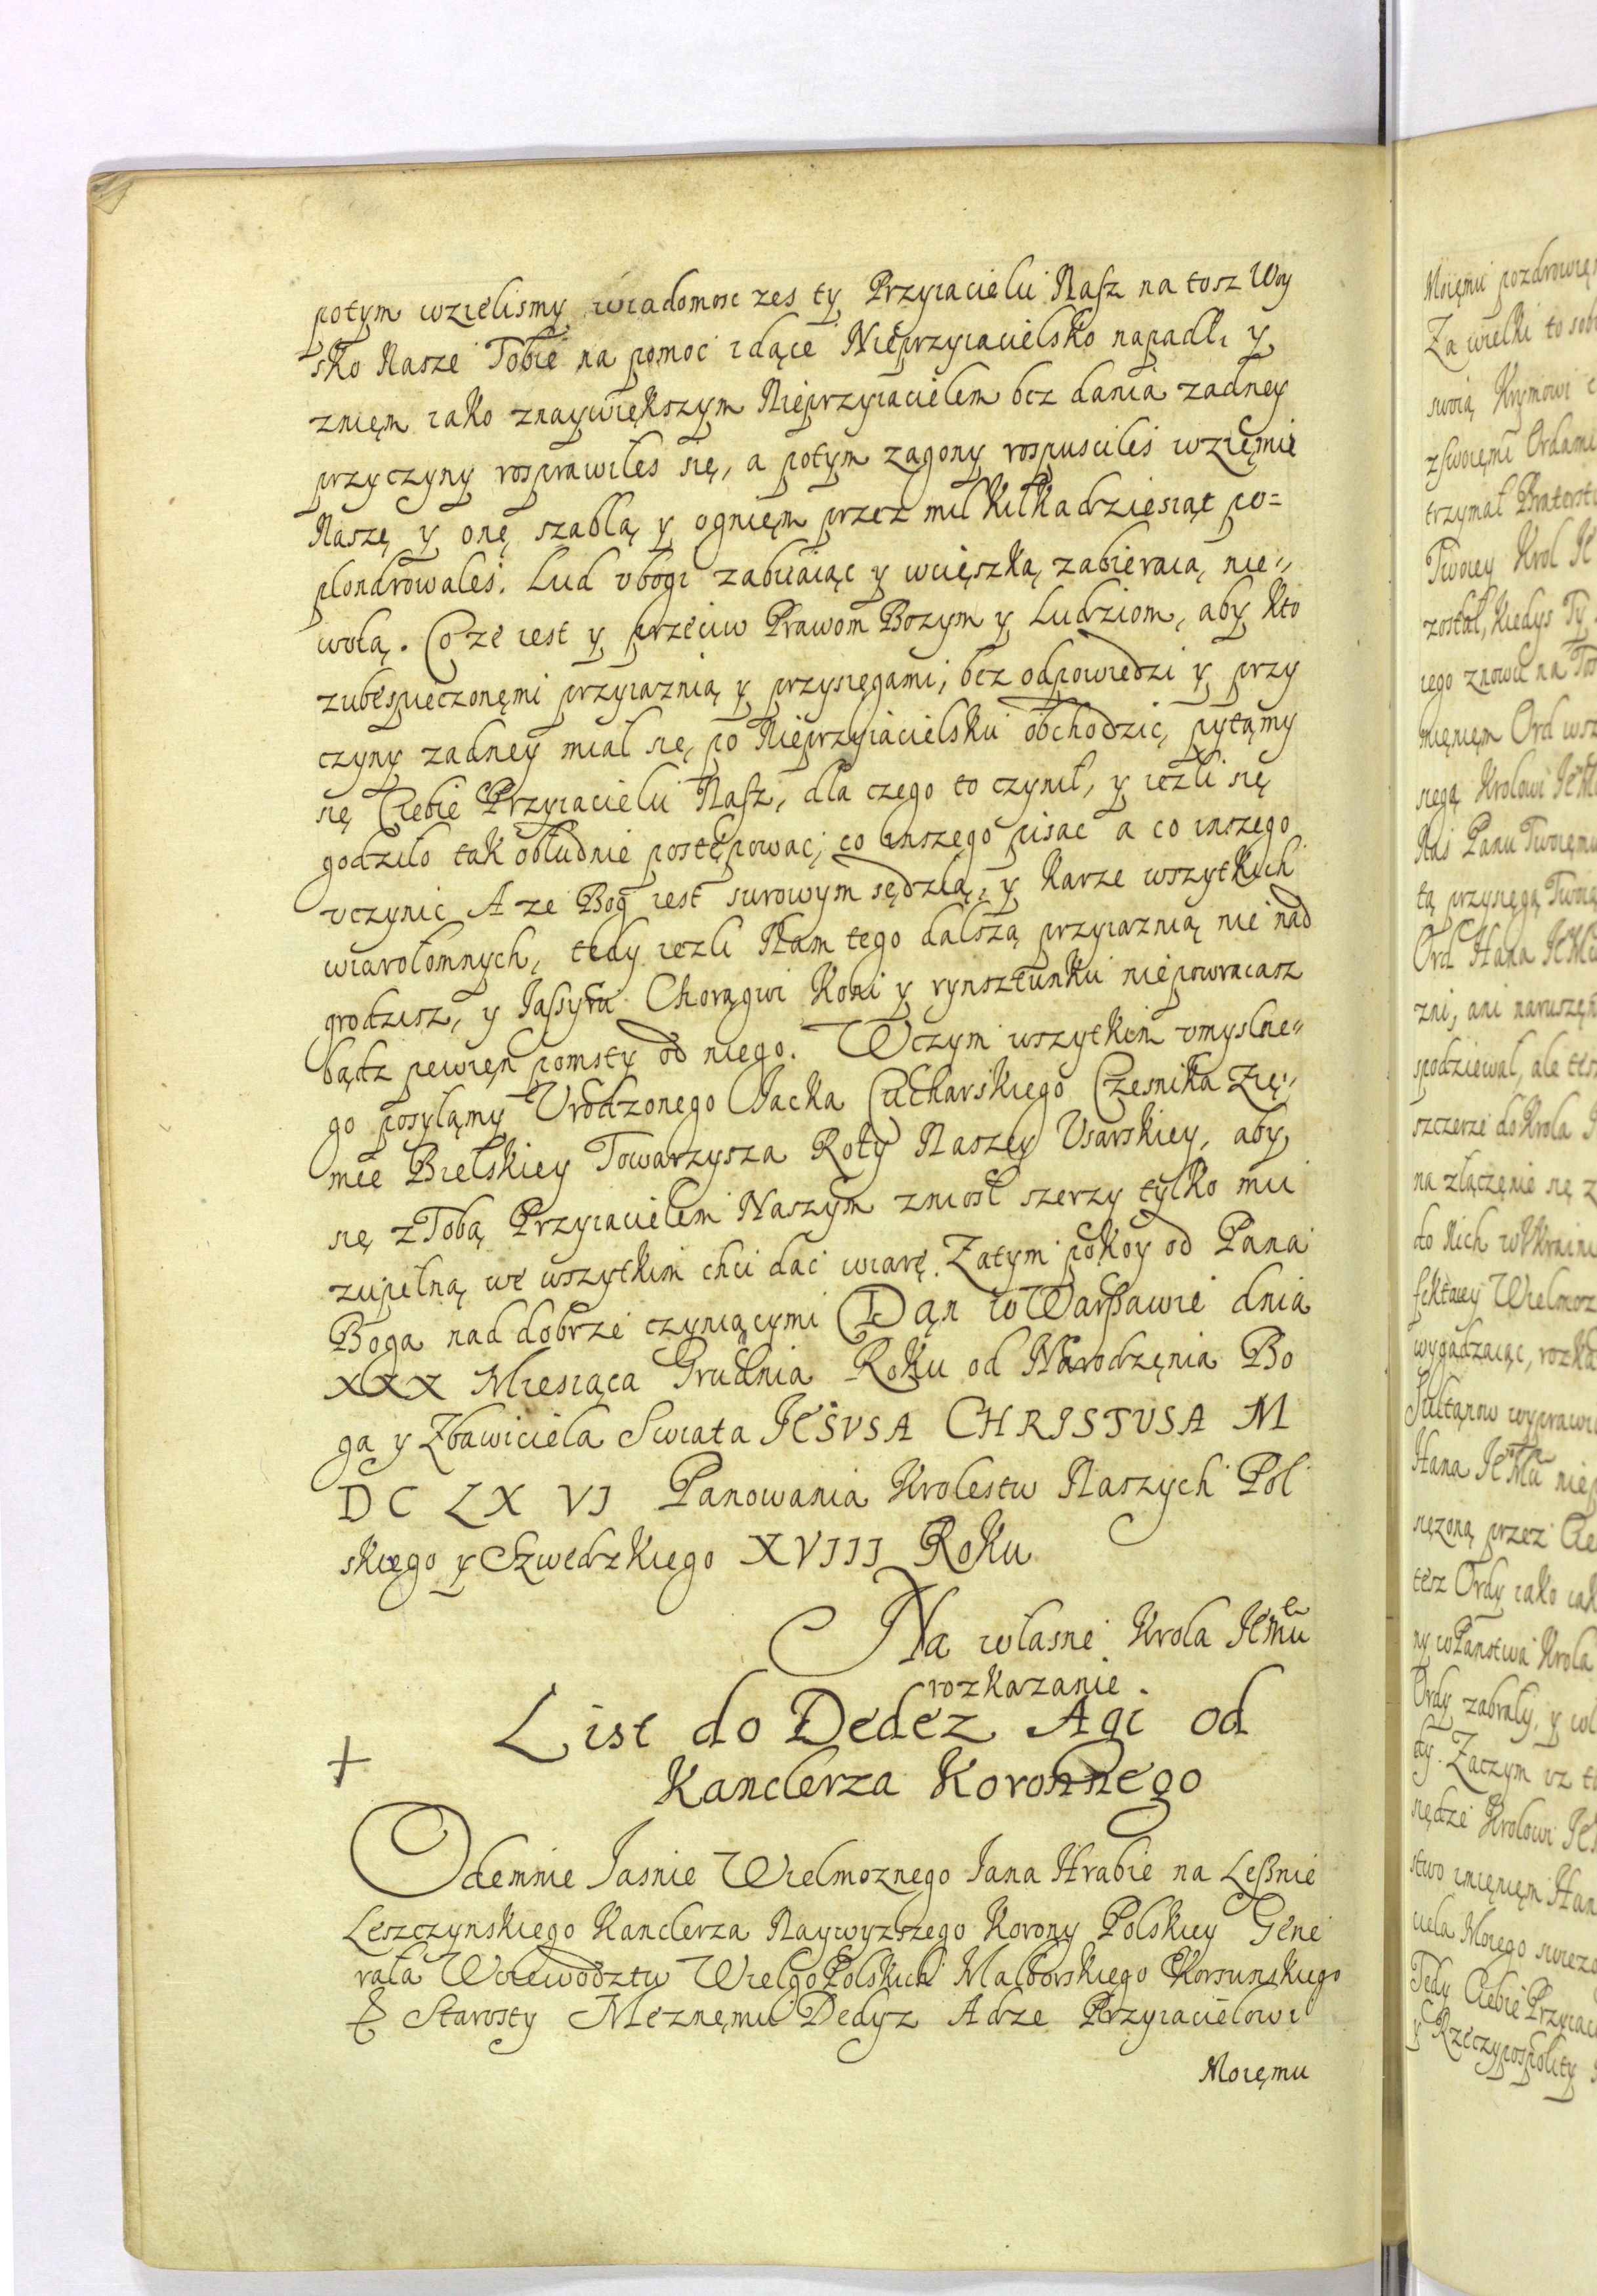 potym wzielismy wiadomosc zes ty Przyiacielu Nasz na tosz Woy
sko Nasze Tobie na pomoc idące Nieprzyiacielsko napadł, y
znięm iako znaywiększym Nieprzyiacielem bez dania zadney
przyczyny rosprawiles się, a potym zagony rospusciles wziemię
Naszę y onę szablą y ogniem przez mil kilkadziesiąt po=
plondrowaleś. Lud vbogi zabiiaiąc y wcięszką zabieraią nie„
wolą. Coze iest y przeciw Prawom Bozym y Ludziom, aby kto
zubespieczonęmi przyiaznią y przysięgami, bez odpowiedzi y przy
czyny zadney miał się po Nieprzyiacielsku obchodzic, pytąmy
się Ciebie Przyiacielu Nasz, dla czego to czynił, y iezli się
godziło tak obłudnie postępowac, co inszego pisac a co inszego
vczynic A ze Bog iest surowym sędzią, y karze wszytkich
wiarołomnych, tedy iezli Nam tego dalszą przyiaznią nie nad
grodzisz, y Jassyru Chorągwi Koni y rynsztunku niepowracasz
bądz pewięn pomsty od niego. Wczym wszytkim vmyslne„
go posyłąmy Vrodzonego Jacka Cucharskiego Czesnika Zię„
mie Bielskiey Towarzysza Roty Naszey Vsarskiey, aby
się z Tobą Przyiacielem Naszym zniosł szerzy tylko mu
zupełną we wszytkim chci dac wiarę. Zatym pokoy od Pana
Boga nad dobrze czyniącymi Dąn w Warszawie dnia
XXX Miesiąca Grudnia Roku od Narodzęnia Bo
ga y Zbawiciela Swiata JESVSA CHRISTVSA M
DC LX VI Panowania Krolestw Naszych Pol
skiego y Szwedzkiego XVIII Roku
Na własne Krola JEmci
rozkazanie.
+ List do Dedez Agi od
Kanclerza Koronnego
Odemnie Jasnie Wielmoznego Jana Hrabie na Lesznie
Leszczynskiego Kanclerza Naywyzszego Korony Polskiey Gene
rała Woiewodztw WielgoPolskich Malborskiego Korsunskiego
& Starosty Meznęmu Dedyz Adze Przyiacielowi
Moięmu
Moięmu
Za wielki to
swoią Krymowi
trzymał
Twoiey Krol
został, kiedys Ty
iego znowu na
Ord
Krolowi
Panu Twoięmu
tą przysięgą Twoią
Ord Hana
zni, ani
spodziewał, ale
szczerze do Krola
na złączęnie się z
do Nich w Vkraini
Wielmoz
wygadzaiąc,
Sułtąnow
Hana
przez
tesz Ordy iako
w Panstwa Krola
Ordy zabrały, y
Zaczym vz
Krolowi
stwo imięnięm
ciela Moiego
Tedy Ciebie
y Rzeczypospolity